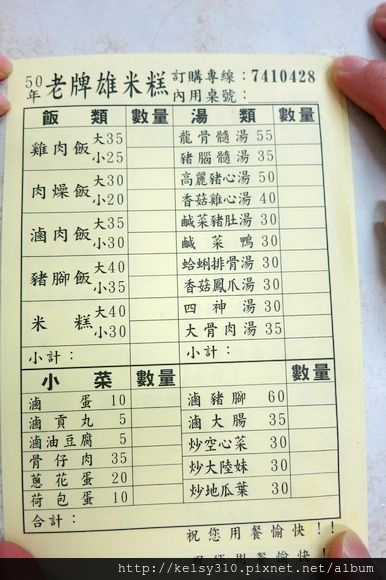 50年 老牌雄米糕 訂購專線：7410428
內用桌號：
飯類 數量 湯類 數量
雞肉飯 大35 小25
肉燥飯 大30 小20
滷肉飯 大35 小30
豬腳飯 大40 小35
米糕 大40 小30
小計：
龍骨髓湯 55
豬腦髓湯 35
高麗豬心湯 50
香菇雞心湯 40
鹹菜豬肚湯 30
鹹菜鴨 30
蛤蜊排骨湯 30
香菇鳳爪湯 30
四神湯 30
大骨肉湯 35
小計：
小菜 數量 數量
滷蛋 10
滷貢丸 5
滷油豆腐 5
骨仔肉 35
蔥花蛋 20
荷包蛋 10
滷豬腳 60
滷大腸 35
炒空心菜 30
炒大陸妹 30
炒地瓜葉 30
合計：
祝您用餐愉快！！
http://kelsy310.pixnet.net/album